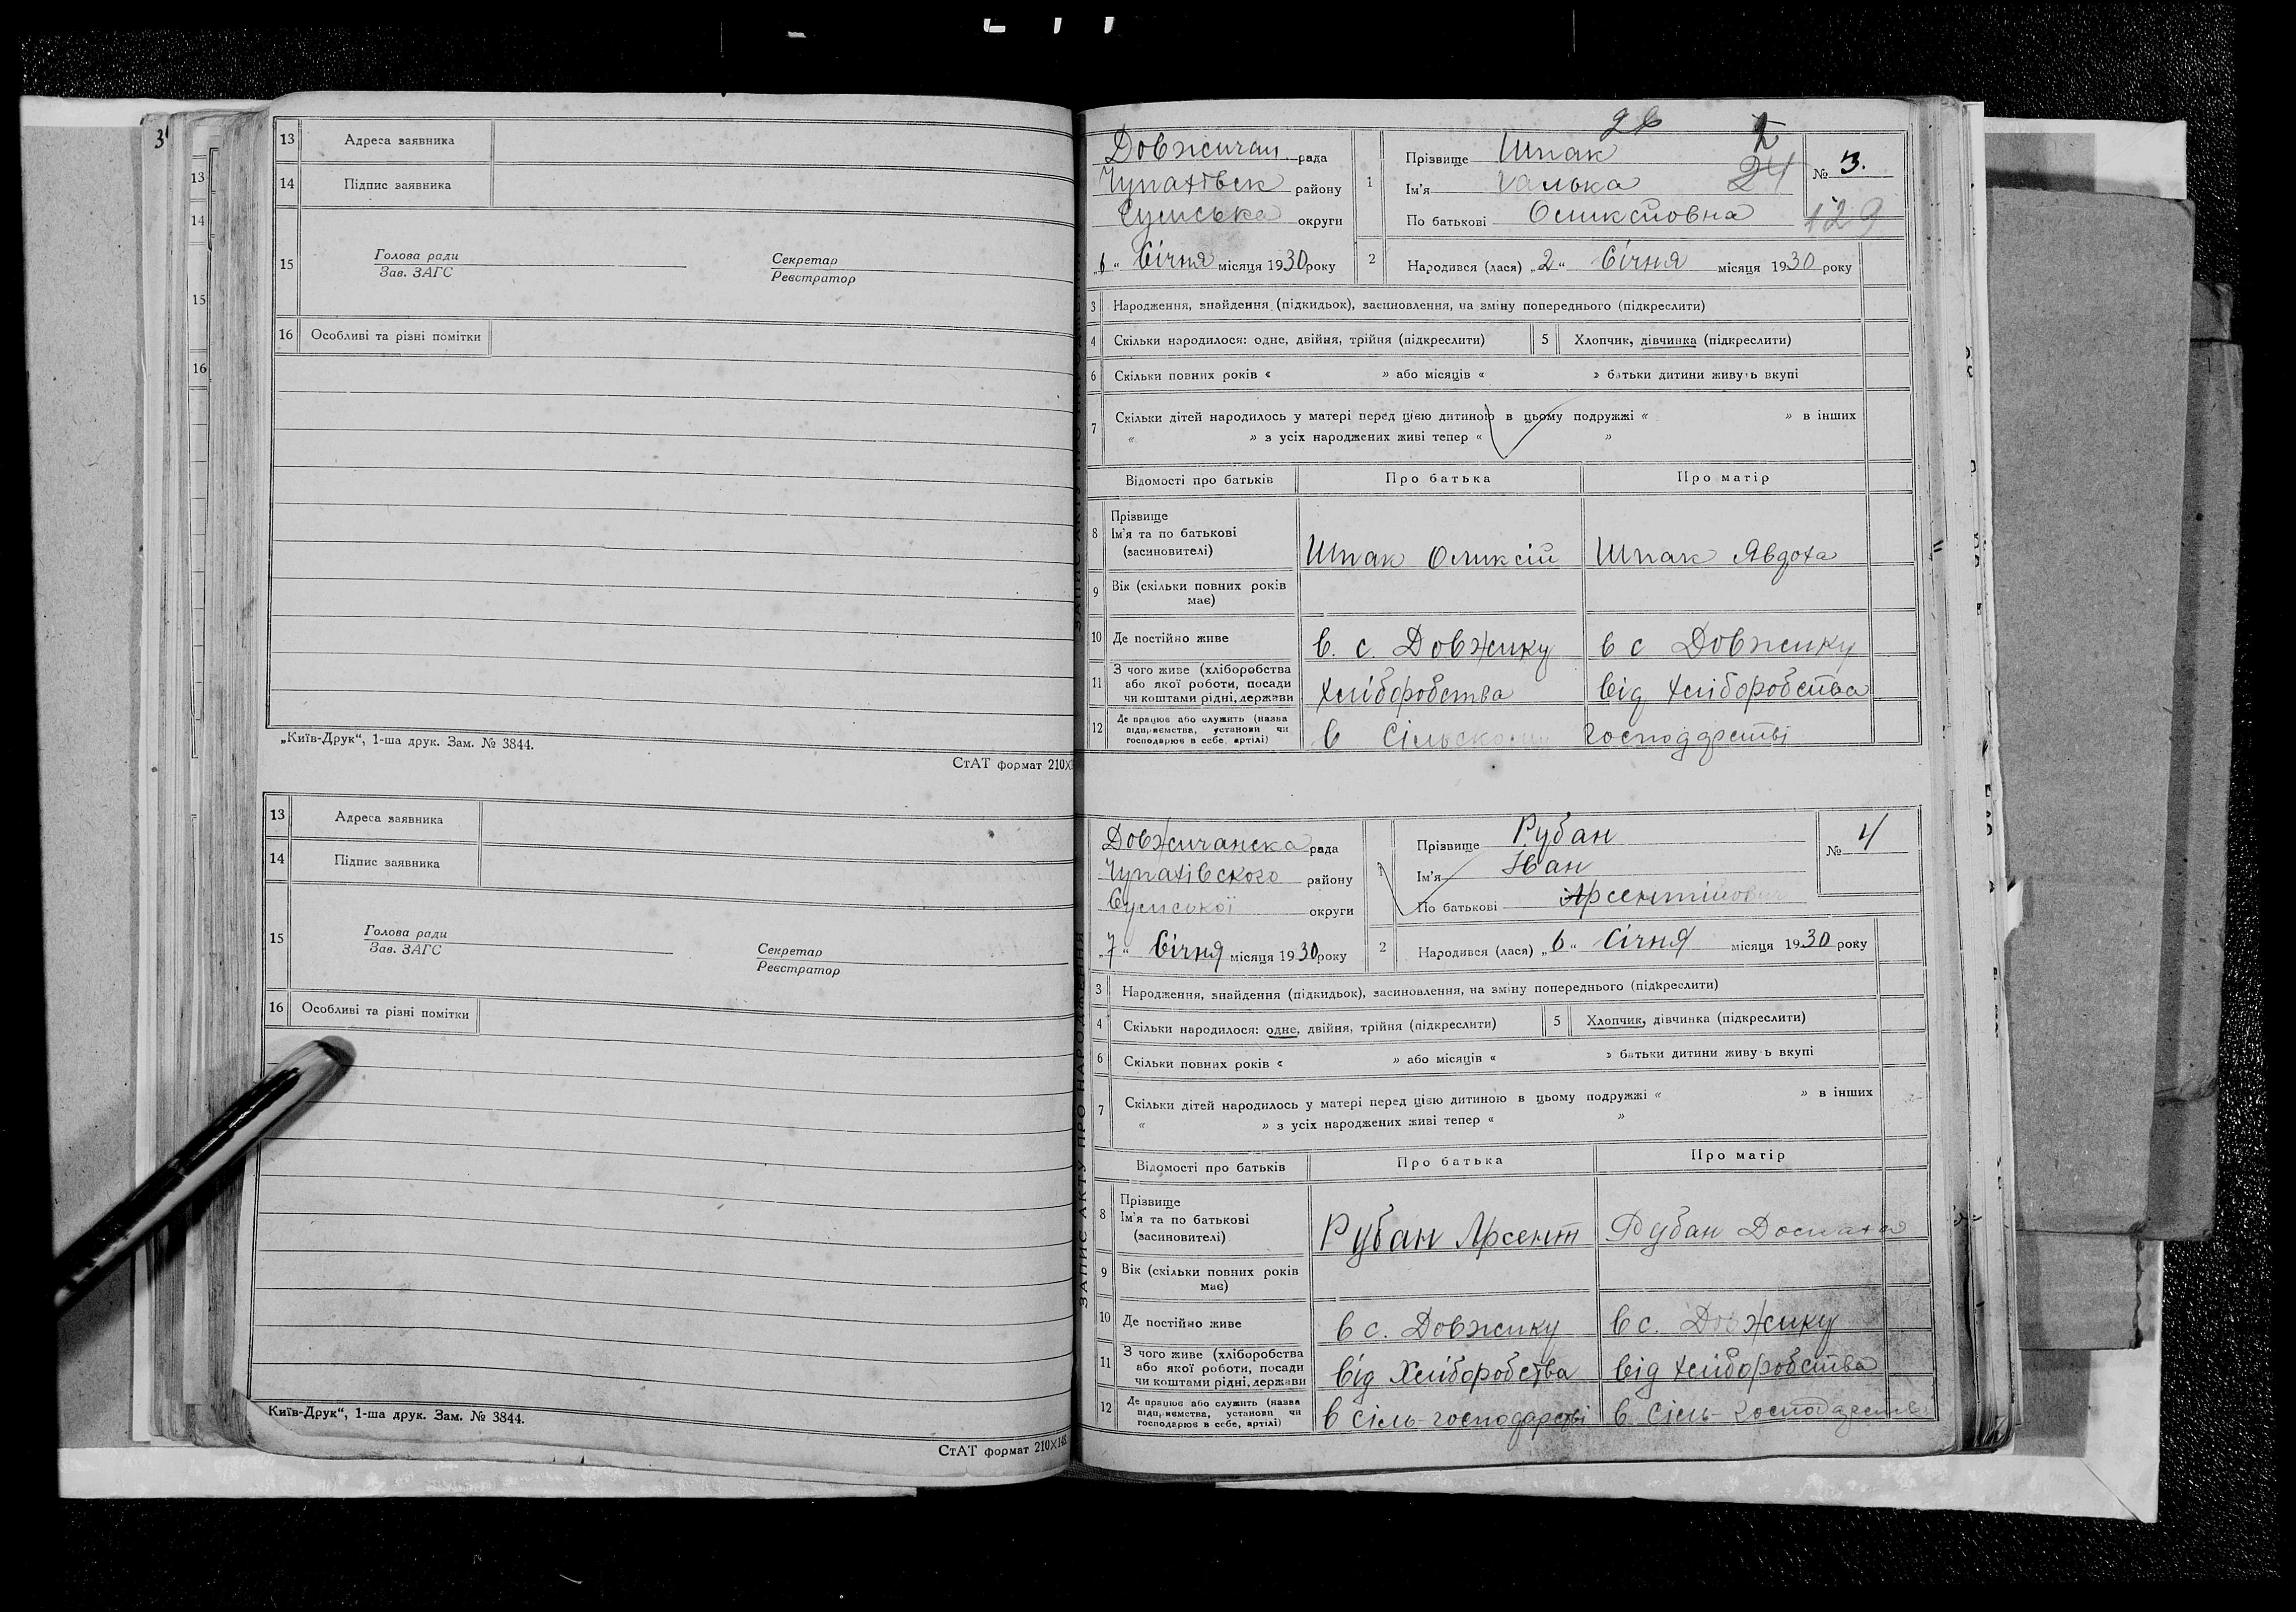 3
13
14
15
16
13 Адреса заявника
14 Підпис заявника
15 Голова ради
Зав. ЗАГС
Секретар
Реєстратор
16 Особливі та різні помітки
„Київ-Друк“, 1-ша друк. Зам. № 3844.
СтАТ формат 210X
13 Адреса заявника
14 Підпис заявника
15 Голова ради
Зав. ЗАГС
Секретар
Реєстратор
16 Особливі та різні помітки
Київ-Друк“, 1-ша друк. Зам. № 3844.
СтАТ формат 210X148
ЗАПИС АКТУ ПРО НАРОДЖЕННЯ
Довжичан. рада
Чупахівск району
Сумська округи
„6“ Січня місяця 1930 року
1 Прізвище Шпак
Ім'я Галька 24
По батькові
№ 3.
129
2 Народився (лася) „2“ Січня місяця 1930 року
3 Народження, знайдення (підкидьок), засиновлення, на зміну попереднього (підкреслити)
4 Скільки народилося: одне, двійня, трійня (підкреслити) 5 Хлопчик, дівчинка (підкреслити)
6 Скільки повних років « » або місяців « » батьки дитини живуть вкупі
7 Скільки дітей народилось у матері перед цією дитиною в цьому подружжі « » в інших
« » з усіх народжених живі тепер « »
Відомості про батьків Про батька Про матір
8 Прізвище
Ім'я та по батькові
(засиновителі) Шпак Оликсій Шпак Явдоха
9 Вік (скільки повних років
має)
10 Де постійно живе в. с. Довжику в с Довжику
11 З чого живе (хліборобства
або якої роботи, посади
чи коштами рідні, держави хліборобства від хліборобства
12 Де працює або служить (назва
підприємства, установи чи
господарює в себе, артілі) в господарстві
Довжичанска рада
Чупахівского району
Сумської округи
„7“ Січня місяця 1930 року
1 Прізвище Рубан
Ім'я Іван
По батькові Арсентійович
№ 4
2 Народився (лася) „6“ Січня місяця 1930 року
3 Народження, знайдення (підкидьок), засиновлення, на зміну попереднього (підкреслити)
4 Скільки народилося: одне, двійня, трійня (підкреслити) 5 Хлопчик, дівчинка (підкреслити)
6 Скільки повних років « » або місяців « » батьки дитини живу ь вкупі
7 Скільки дітей народилось у матері перед цією дитиною в цьому подружжі « » в інших
« » з усіх народжених живі тепер « »
Відомості про батьків Про батька Про матір
8 Прізвище
Ім'я та по батькові
(засиновителі) Рубан Арсент Рубан
9 Вік (скільки повних років
має)
10 Де постійно живе в с. Довжику в с. Довжику
11 З чого живе (хліборобства
або якої роботи, посади
чи коштами рідні, держави від Хліборобства від хліборобства
12 Де працює або служить (назва
підприємства, установи чи
господарює в себе, артілі) в сіль-господарстві в сіль-господарстві